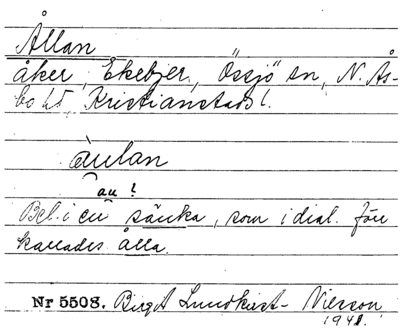 Ållan
åker, Ekebjer, Össjö sn, N. Ås-
bo hd, Kristianstads l.
àulan
au!
Bel. i en sänka, som i dial. förr
kallades ålla.
Nr 5508. Birgit Lundkvist-Nilsson
1941.